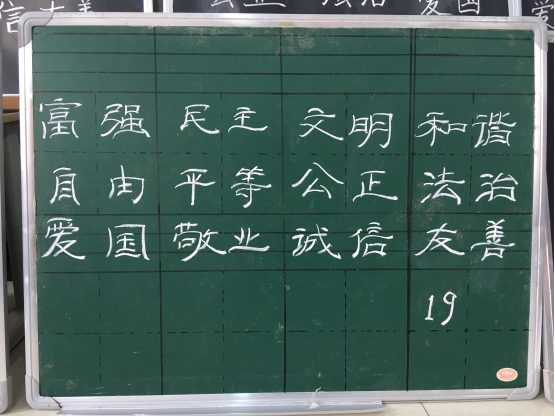 信 善
爱国
富强 民主 文明 和谐
自由 平等 公正 法治
爱国 敬业 诚信 友善
19